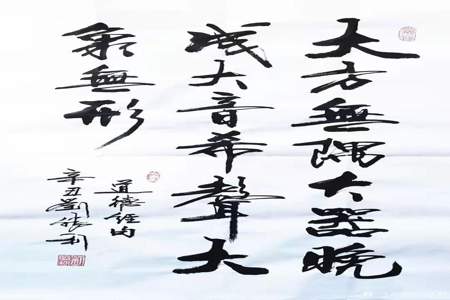 大方無隅大器晚
成大音希聲大
象無形
道德經句
辛丑劉勝利